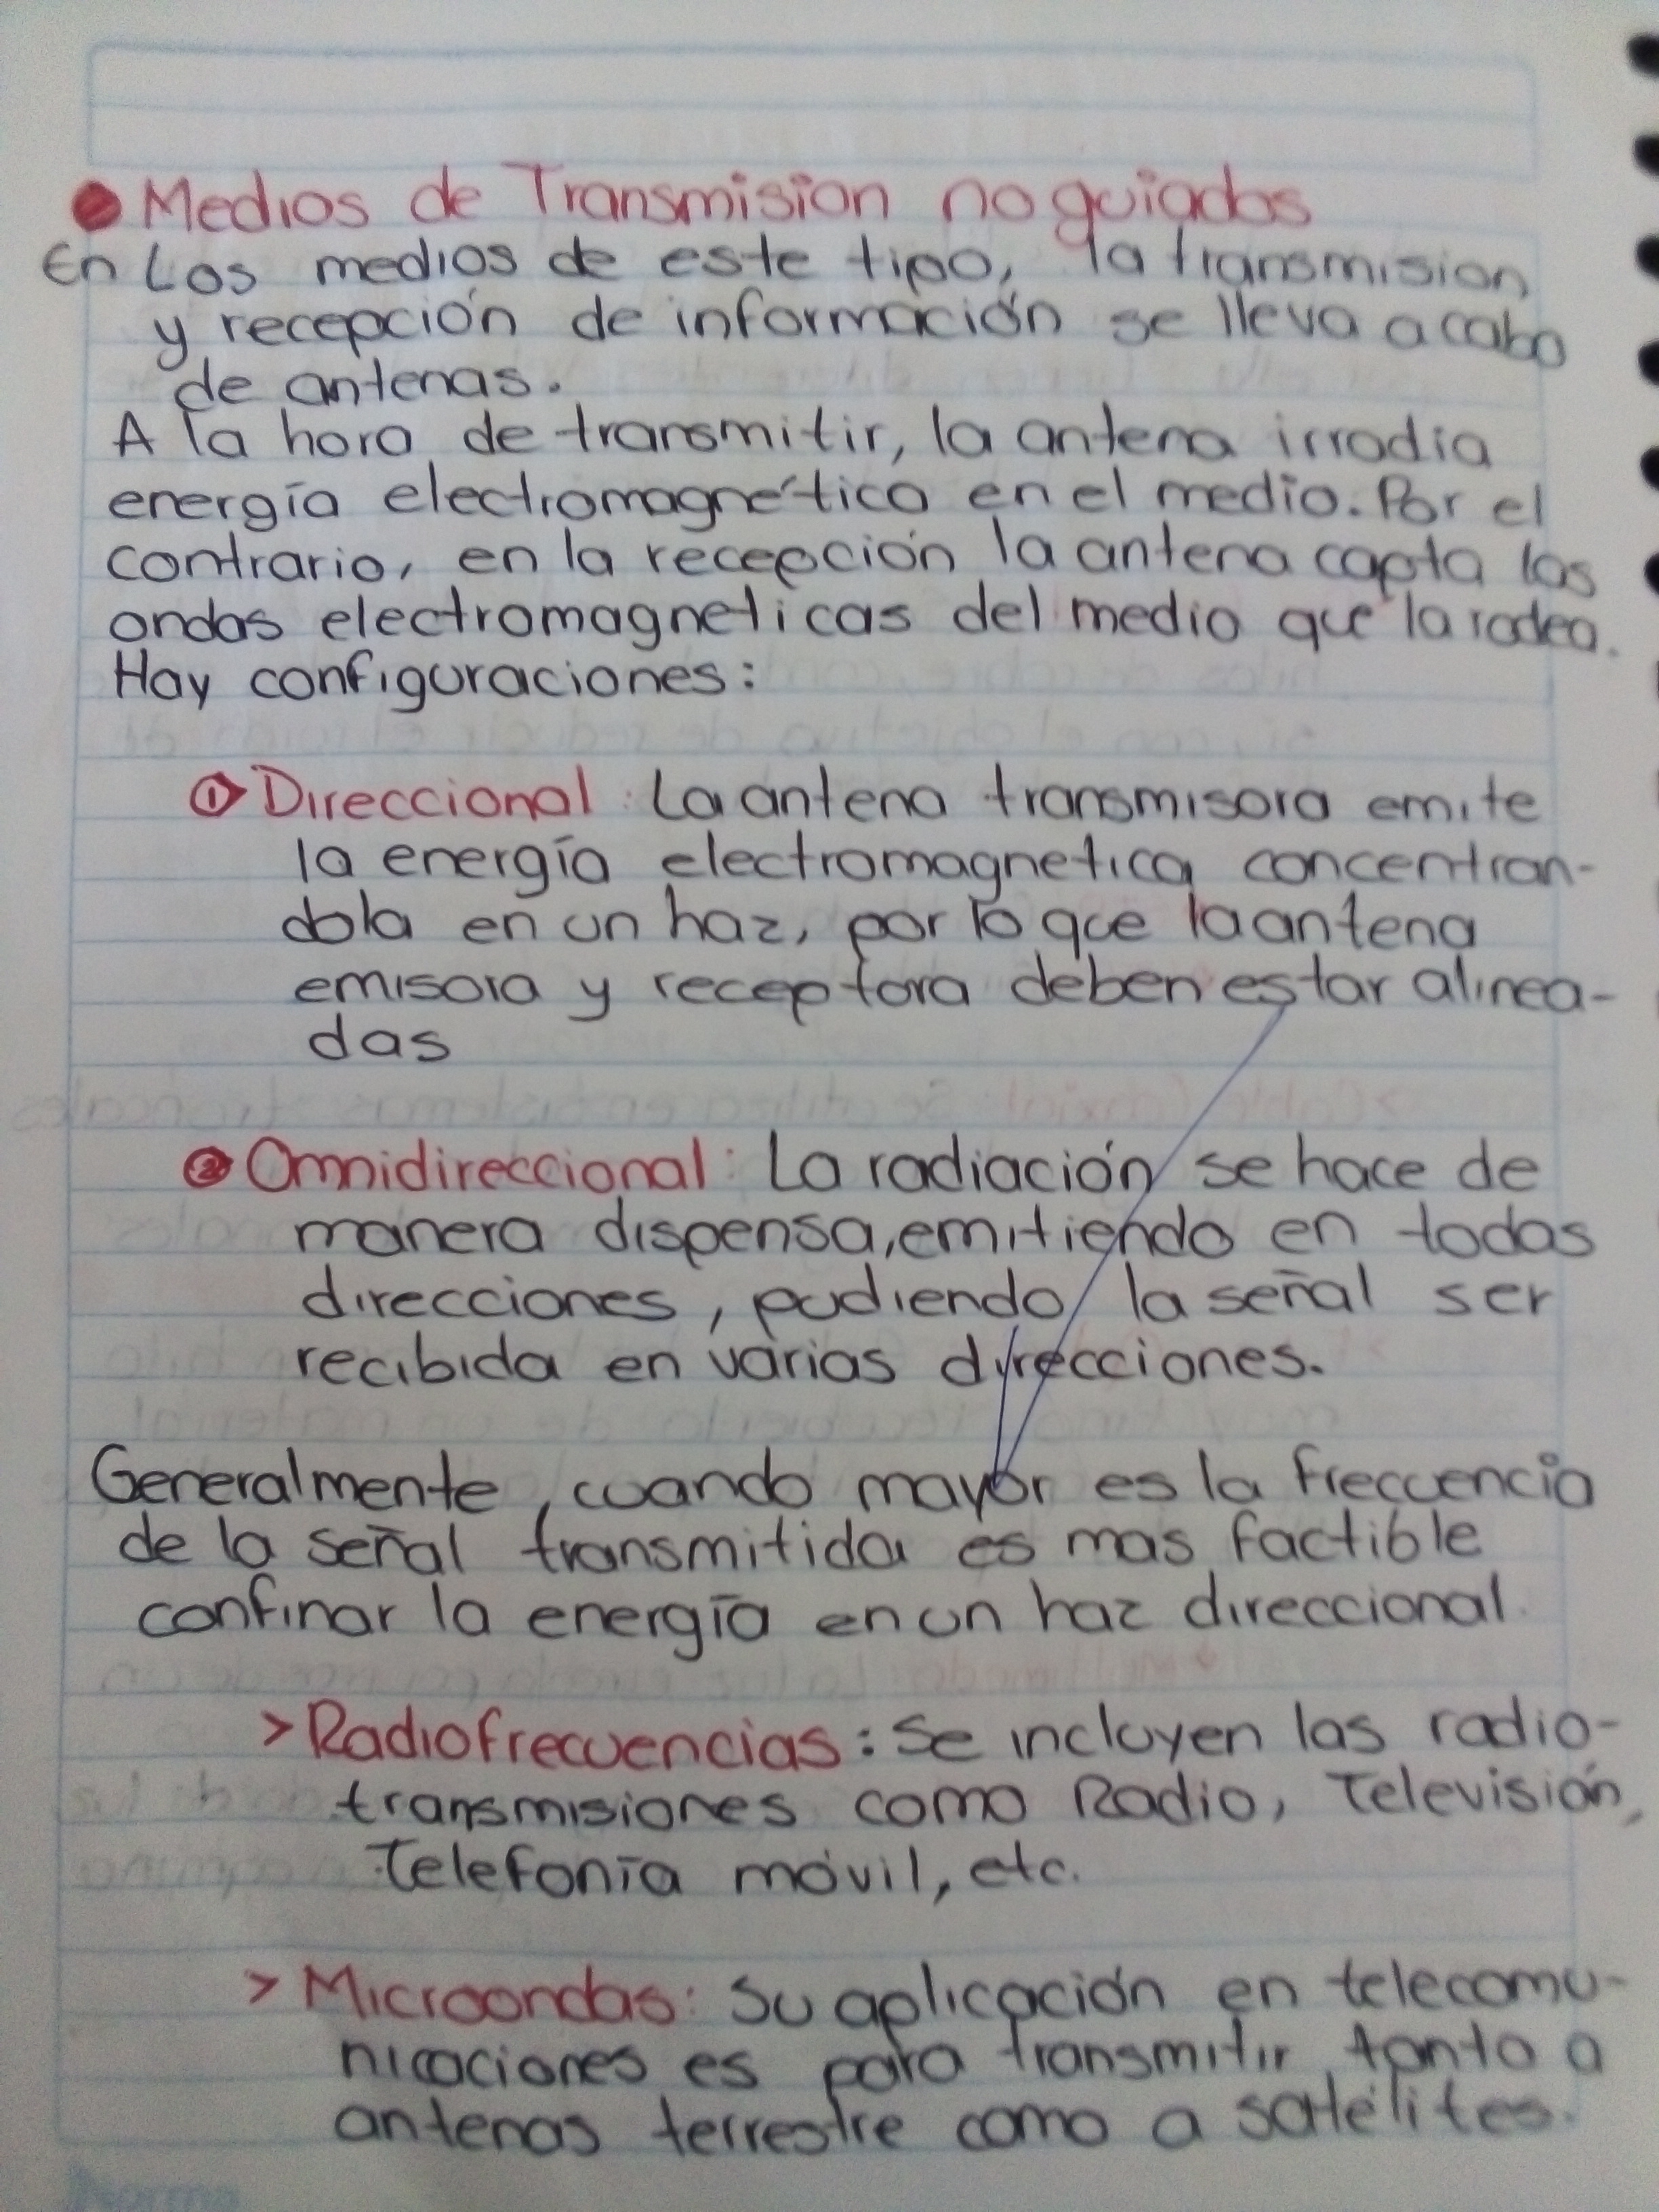 ● Medios de Transmision no guiados
En Los medios de este tipo, la transmision
y recepción de información se lleva a cabo
de antenas.
A la hora de transmitir, la antena irradia
energía electromagnética en el medio. Por el
contrario, en la recepción la antena capta las
ondas electromagneticas del medio que la rodea.
Hay configuraciones:
① Direccional: La antena transmisora emite
la energía electromagnetica concentran-
dola en un haz, por lo que la antena
emisora y receptora deben estar alinea-
das
② Omnidireccional: La radiación se hace de
manera dispensa, emitiendo en todas
direcciones, pudiendo la señal ser
recibida en varias direcciones.
Generalmente, cuando mayor es la frecuencia
de la señal transmitida es mas factible
confinar la energía en un haz direccional.
> Radiofrecuencias: Se incluyen las radio-
transmisiones como Radio, Televisión,
Telefonía móvil, etc.
> Microondas: Su aplicación en telecomu-
nicaciones es para transmitir tanto a
antenas terrestre como a satélites.
Norma